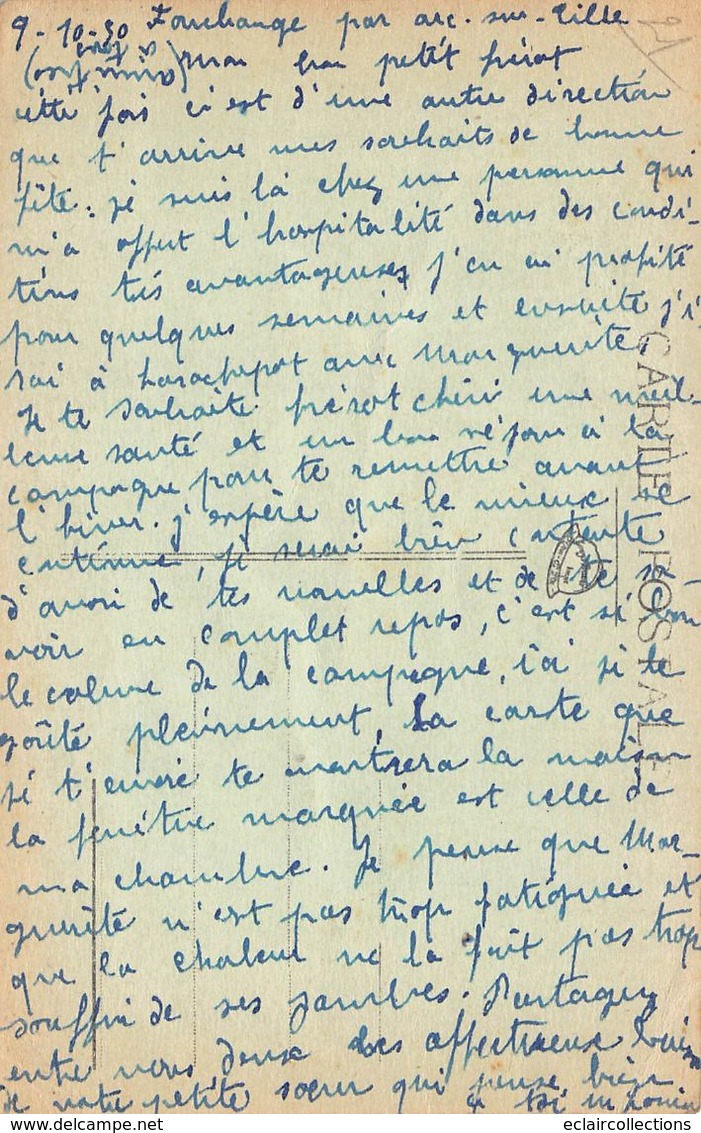 9-10-30 Fouchange par arc-sur-Tille
Mon bon petit frérot
cette fois ci est d'une autre direction
que t'arrive mes souhaits de bonne
fête : je suis là chez une personne qui
m'a offert l'hospitalité dans des condi-
tions très avantageuses j'en ai profité
pour quelques semaines et ensuite j'i-
rai à Larochepot avec Marguerite,
Je te souhaite frérot chéri une meil-
leure santé et un bon séjour à la
campagne pour te remettre avant
l'hiver. J'espère que le mieux se
continue, je serai bien contente
d'avoir de tes nouvelles et de te sa-
voir en complet repos, c'est si bon
le calme de la campagne, ici je le
goûte pleinement, La carte que
je t'envoie te montrera la maison
la fenêtre marquée est celle de
ma chambre. Je pense que Mar-
guerite n'est pas trop fatiguée et
que la chaleur ne la fait pas trop
souffrir de ses jambes. Partagez
entre vous deux les affectueux baisers
de votre petite sœur qui pense bien
CARTE POSTALE
eclaircollections